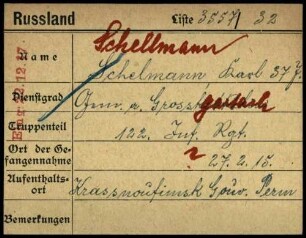 Russland Liste 3557/32
Schellmann
Name Schelmann Karl 37 J.
Dienstgrad Gem. a. Gross Gartach
Truppenteil 122. Inf. Rgt.
Ort der Ge-
fangennahme ? 27.2.15.
Aufenthalts-
ort Krasnoufimsk Gouv. Perm
Bemerkungen
22.12.17